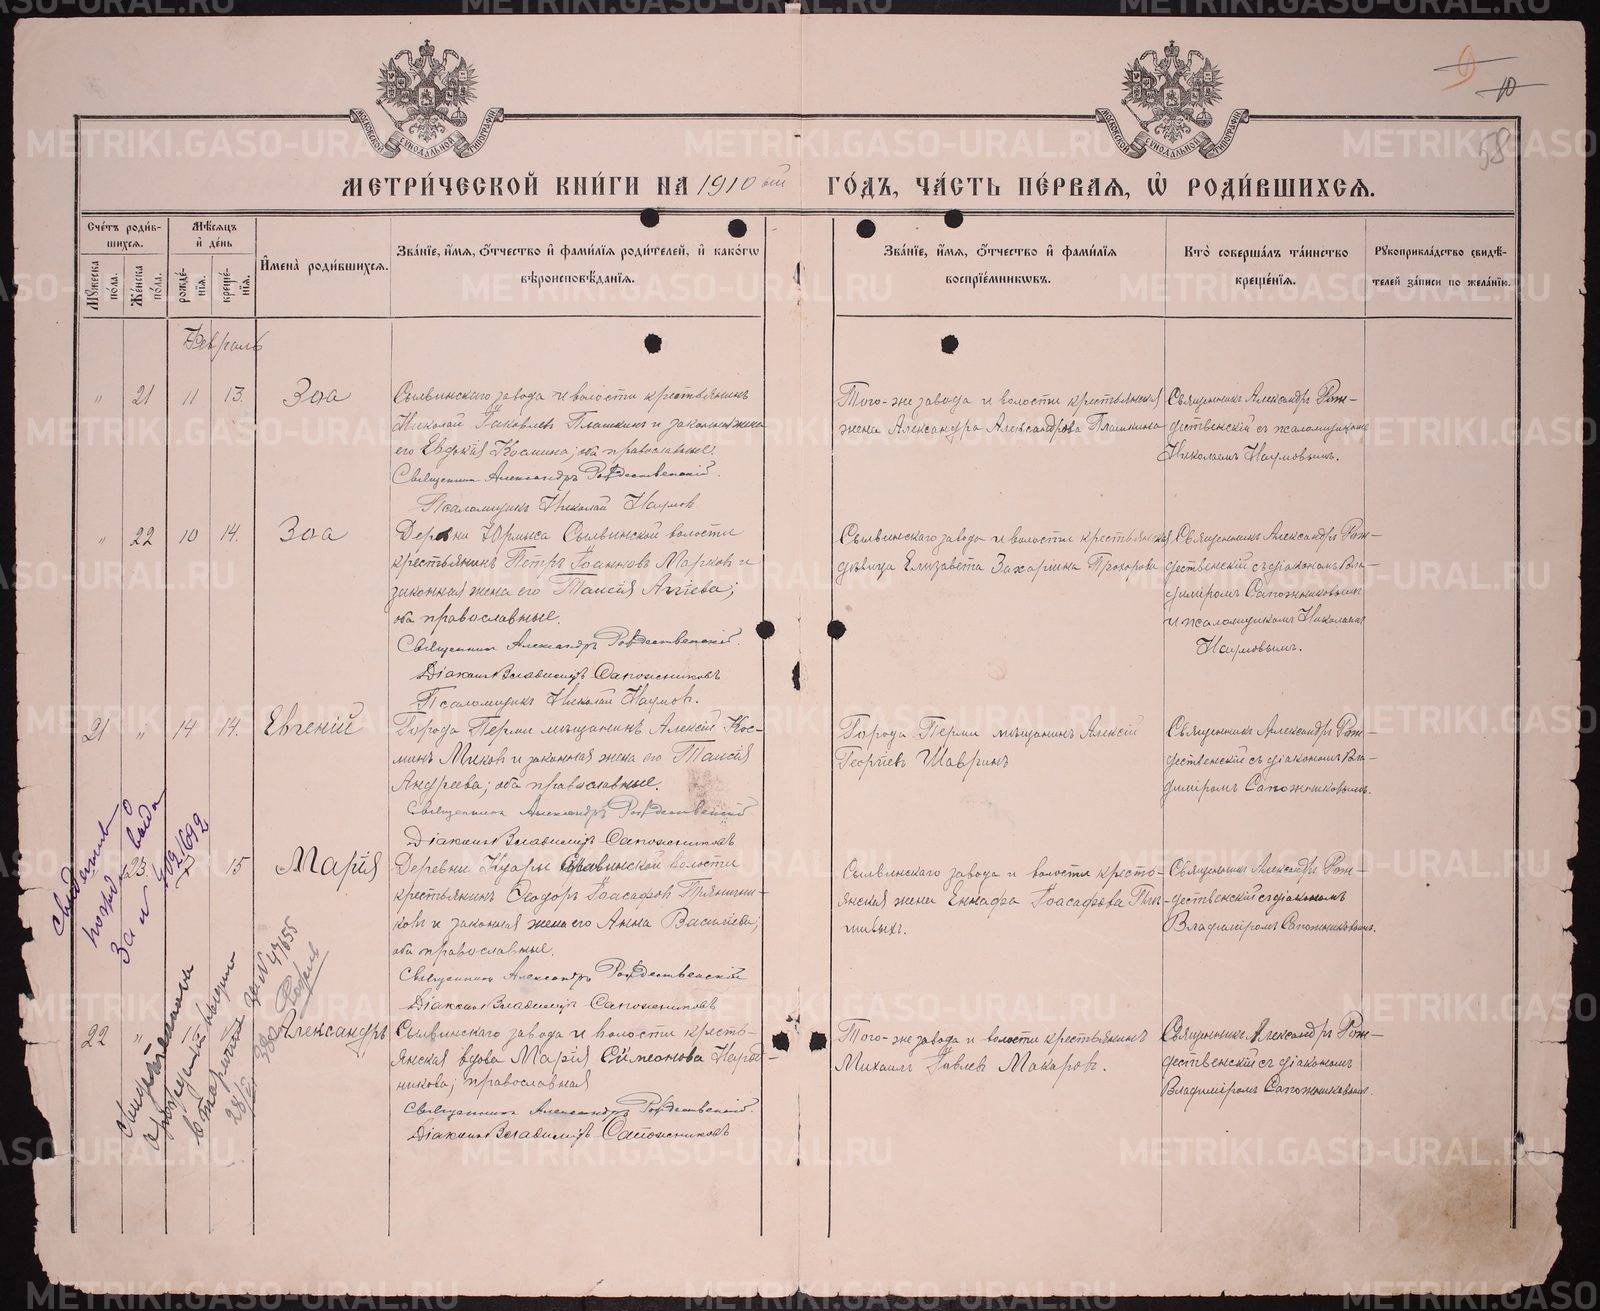 МЕТРИ́ЧЕСКОЙ КНИ́ГИ НА 1910 ый ГО́ДЪ, ЧА́СТЬ ПЕ́РВАЯ, Ѡ҆ РОДИ́ВШИХСЯ.
9
10
58
Сче́тъ роди́вшихся.
Му́жеска по́ла.
Же́нска по́ла.
Мѣ́сяцъ и҆ де́нь
рожде́нїя.
креще́нїя.
И҆мена̀ роди́вшихся.
Зва́нїе, и҆́мя, ѻ҆́тчество и҆ фами́лїя роди́телей, и҆ како́гѡ вѣроисповѣ́данїя.
Зва́нїе, и҆́мя, ѻ҆́тчество и҆ фами́лїя воспрїе́мникѡвъ.
Кто̀ соверша́лъ та́инство креще́нїя.
Рꙋкоприкла́дство свидѣ́телей за́писи по жела́нїю.
Февраль
" 21 11 13. Зоа
Сылвинскаго завода и волости крестьянинъ
Николай Іаковлев Плашкинъ и законная жена
его Евдокія Космина; оба православные.
Священникъ Александръ Рождественскій.
Псаломщикъ Николай Наумов
Того-же завода и волости крестьянская
жена Александра Александрова Плашкина
Священникъ Александръ Рож-
дественскій съ псаломщикомъ
Николаемъ Наумовымъ.
" 22 10 14. Зоа
Деревни Юрмыса Сылвинской волости
крестьянинъ Петръ Іоанновъ Марков и
законная жена его Таисія
оба православные.
Священникъ Александръ Рождественскій.
Діаконъ Владимиръ Сапожниковъ
Псаломщикъ Николай Наумов.
Сылвинскаго завода и волости крестьянская
дѣвица Елизавета Захарина Прохорова
Священникъ Александръ Рож-
дественскій съ діакономъ Вла-
диміромъ Сапожниковымъ
и псаломщикомъ Николаемъ
Наумовымъ.
21 " 14 14. Евгеній
Города Перми мѣщанинъ Алексій Кос-
минъ и законная жена его Таисія
Андреева; оба православные.
Священникъ Александръ Рождественскій
Діаконъ Владимиръ Сапожниковъ
Города Перми мѣщанинъ Алексій
Георгіев Шавринъ
Священникъ Александръ Рож-
дественскій съ діакономъ Вла-
диміромъ Сапожниковымъ.
23. 15 Марія
Деревни волости
крестьянинъ Ѳеодоръ Іоасафов Прянични-
ков и законная жена его Анна Васильева;
оба православные.
Священникъ Александръ Рождественскій
Діаконъ Владимиръ Сапожниковъ
Сылвинскаго завода и волости кресть-
янская жена Іоасафова
Священникъ Александръ Рож-
дественскій съ діакономъ
Владиміромъ Сапожниковымъ.
22 " Александръ
Сылвинскаго завода и волости кресть-
янская вдова Марія Симеонова
никова; православная
Священникъ Александръ Рождественскій.
Діаконъ Владимиръ Сапожниковъ
Того-же завода и волости крестьянинъ
Михаилъ Павлев Макаров.
Священникъ Александръ Рож-
дественскій съ діакономъ
Владиміромъ Сапожниковымъ
METRIKI.GASO-URAL.RU